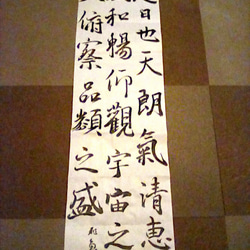 是日也天朗氣清恵
風和暢仰觀宇宙之
大俯察品類之盛